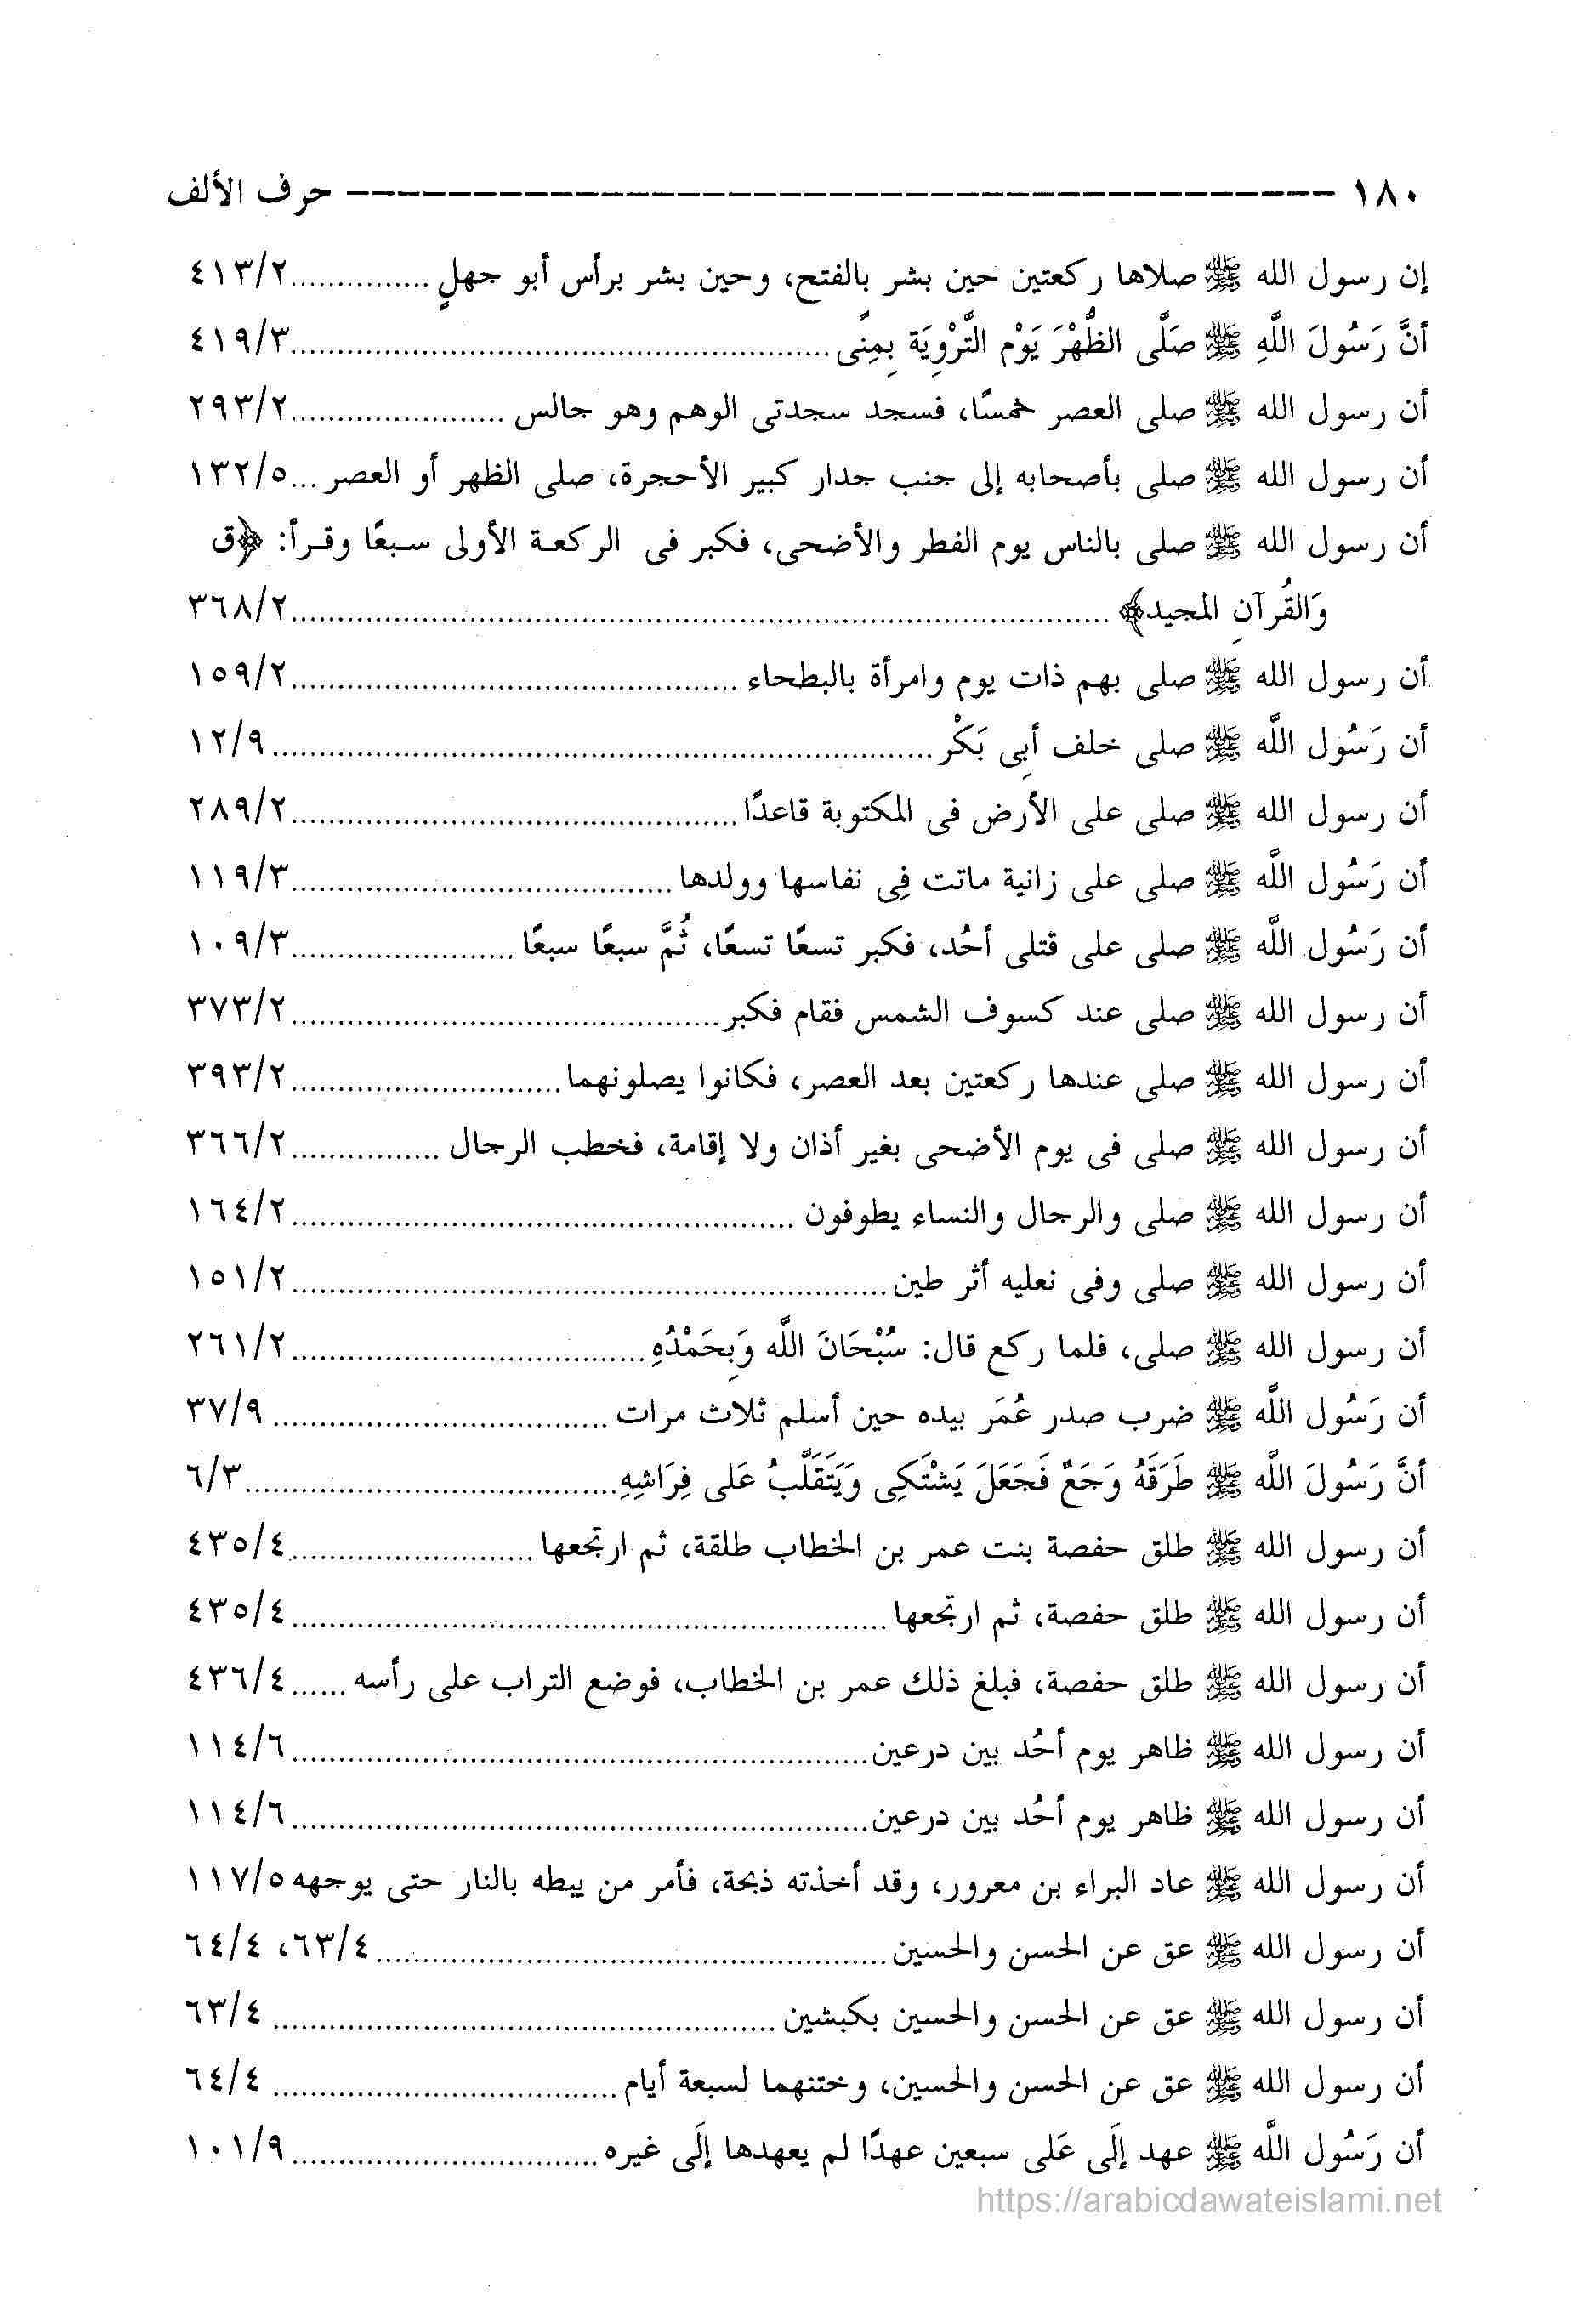 ١٨٠ ---------------------------------------- حرف الألف
إن رسول الله ﷺ صلاها ركعتين حين بشر بالفتح، وحين بشر برأس أبو جهلٍ ............... ٤١٣/٢
أنَّ رَسُولَ اللَّهِ ﷺ صَلَّى الظُّهْرَ يَوْم التَّرْوِيَة بِمِنًى ............... ٤١٩/٣
أن رسول الله ﷺ صلى العصر خمسًا، فسجد سجدتى الوهم وهو جالس ............... ٢٩٣/٢
أن رسول الله ﷺ صلى بأصحابه إلى جنب جدار كبير الأحجرة، صلى الظهر أو العصر ... ١٣٢/٥
أن رسول الله ﷺ صلى بالناس يوم الفطر والأضحى، فكبر فى الركعة الأولى سبعًا وقرأ: ﴿ق
وَالقُرآنِ المجيد﴾ ............... ٣٦٨/٢
أن رسول الله ﷺ صلى بهم ذات يوم وامرأة بالبطحاء ............... ١٥٩/٢
أن رَسُول اللَّه ﷺ صلى خلف أبِى بَكْر ............... ١٢/٩
أن رسول الله ﷺ صلى على الأرض فى المكتوبة قاعدًا ............... ٢٨٩/٢
أن رَسُول اللَّه ﷺ صلى على زانية ماتت فِى نفاسها وولدها ............... ١١٩/٣
أن رَسُول اللَّه ﷺ صلى على قتلى أحُد، فكبر تسعًا تسعًا، ثُمَّ سبعًا سبعًا ............... ١٠٩/٣
أن رسول الله ﷺ صلى عند كسوف الشمس فقام فكبر ............... ٣٧٣/٢
أن رسول الله ﷺ صلى عندها ركعتين بعد العصر، فكانوا يصلونهما ............... ٣٩٣/٢
أن رسول الله ﷺ صلى فى يوم الأضحى بغير أذان ولا إقامة، فخطب الرجال ............... ٣٦٦/٢
أن رسول الله ﷺ صلى والرجال والنساء يطوفون ............... ١٦٤/٢
أن رسول الله ﷺ صلى وفى نعليه أثر طين ............... ١٥١/٢
أن رسول الله ﷺ صلى، فلما ركع قال: سُبْحَانَ اللَّه وَبِحَمْدُهِ ............... ٢٦١/٢
أن رَسُول اللَّه ﷺ ضرب صدر عُمَر بيده حين أسلم ثلاث مرات ............... ٣٧/٩
أنَّ رَسُولَ اللَّه ﷺ طَرَقَهُ وَجَعٌ فَجَعَلَ يَشْتَكِى وَيَتَقَلَّبُ عَلى فِرَاشِهِ ............... ٦/٣
أن رسول الله ﷺ طلق حفصة بنت عمر بن الخطاب طلقة، ثم ارتجعها ............... ٤٣٥/٤
أن رسول الله ﷺ طلق حفصة، ثم ارتجعها ............... ٤٣٥/٤
أن رسول الله ﷺ طلق حفصة، فبلغ ذلك عمر بن الخطاب، فوضع التراب على رأسه ...... ٤٣٦/٤
أن رسول الله ﷺ ظاهر يوم أحُد بين درعين ............... ١١٤/٦
أن رسول الله ﷺ ظاهر يوم أحُد بين درعين ............... ١١٤/٦
أن رسول الله ﷺ عاد البراء بن معرور، وقد أخذته ذبحة، فأمر من يبطه بالنار حتى يوجهه ١١٧/٥
أن رسول الله ﷺ عق عن الحسن والحسين ............... ٦٣/٤، ٦٤/٤
أن رسول الله ﷺ عق عن الحسن والحسين بكبشين ............... ٦٣/٤
أن رسول الله ﷺ عق عن الحسن والحسين، وختنهما لسبعة أيام ............... ٦٤/٤
أن رَسُول اللَّه ﷺ عهد إلَى عَلى سبعين عهدًا لم يعهدها إلَى غيره ............... ١٠١/٩
https://arabicdawateislami.net